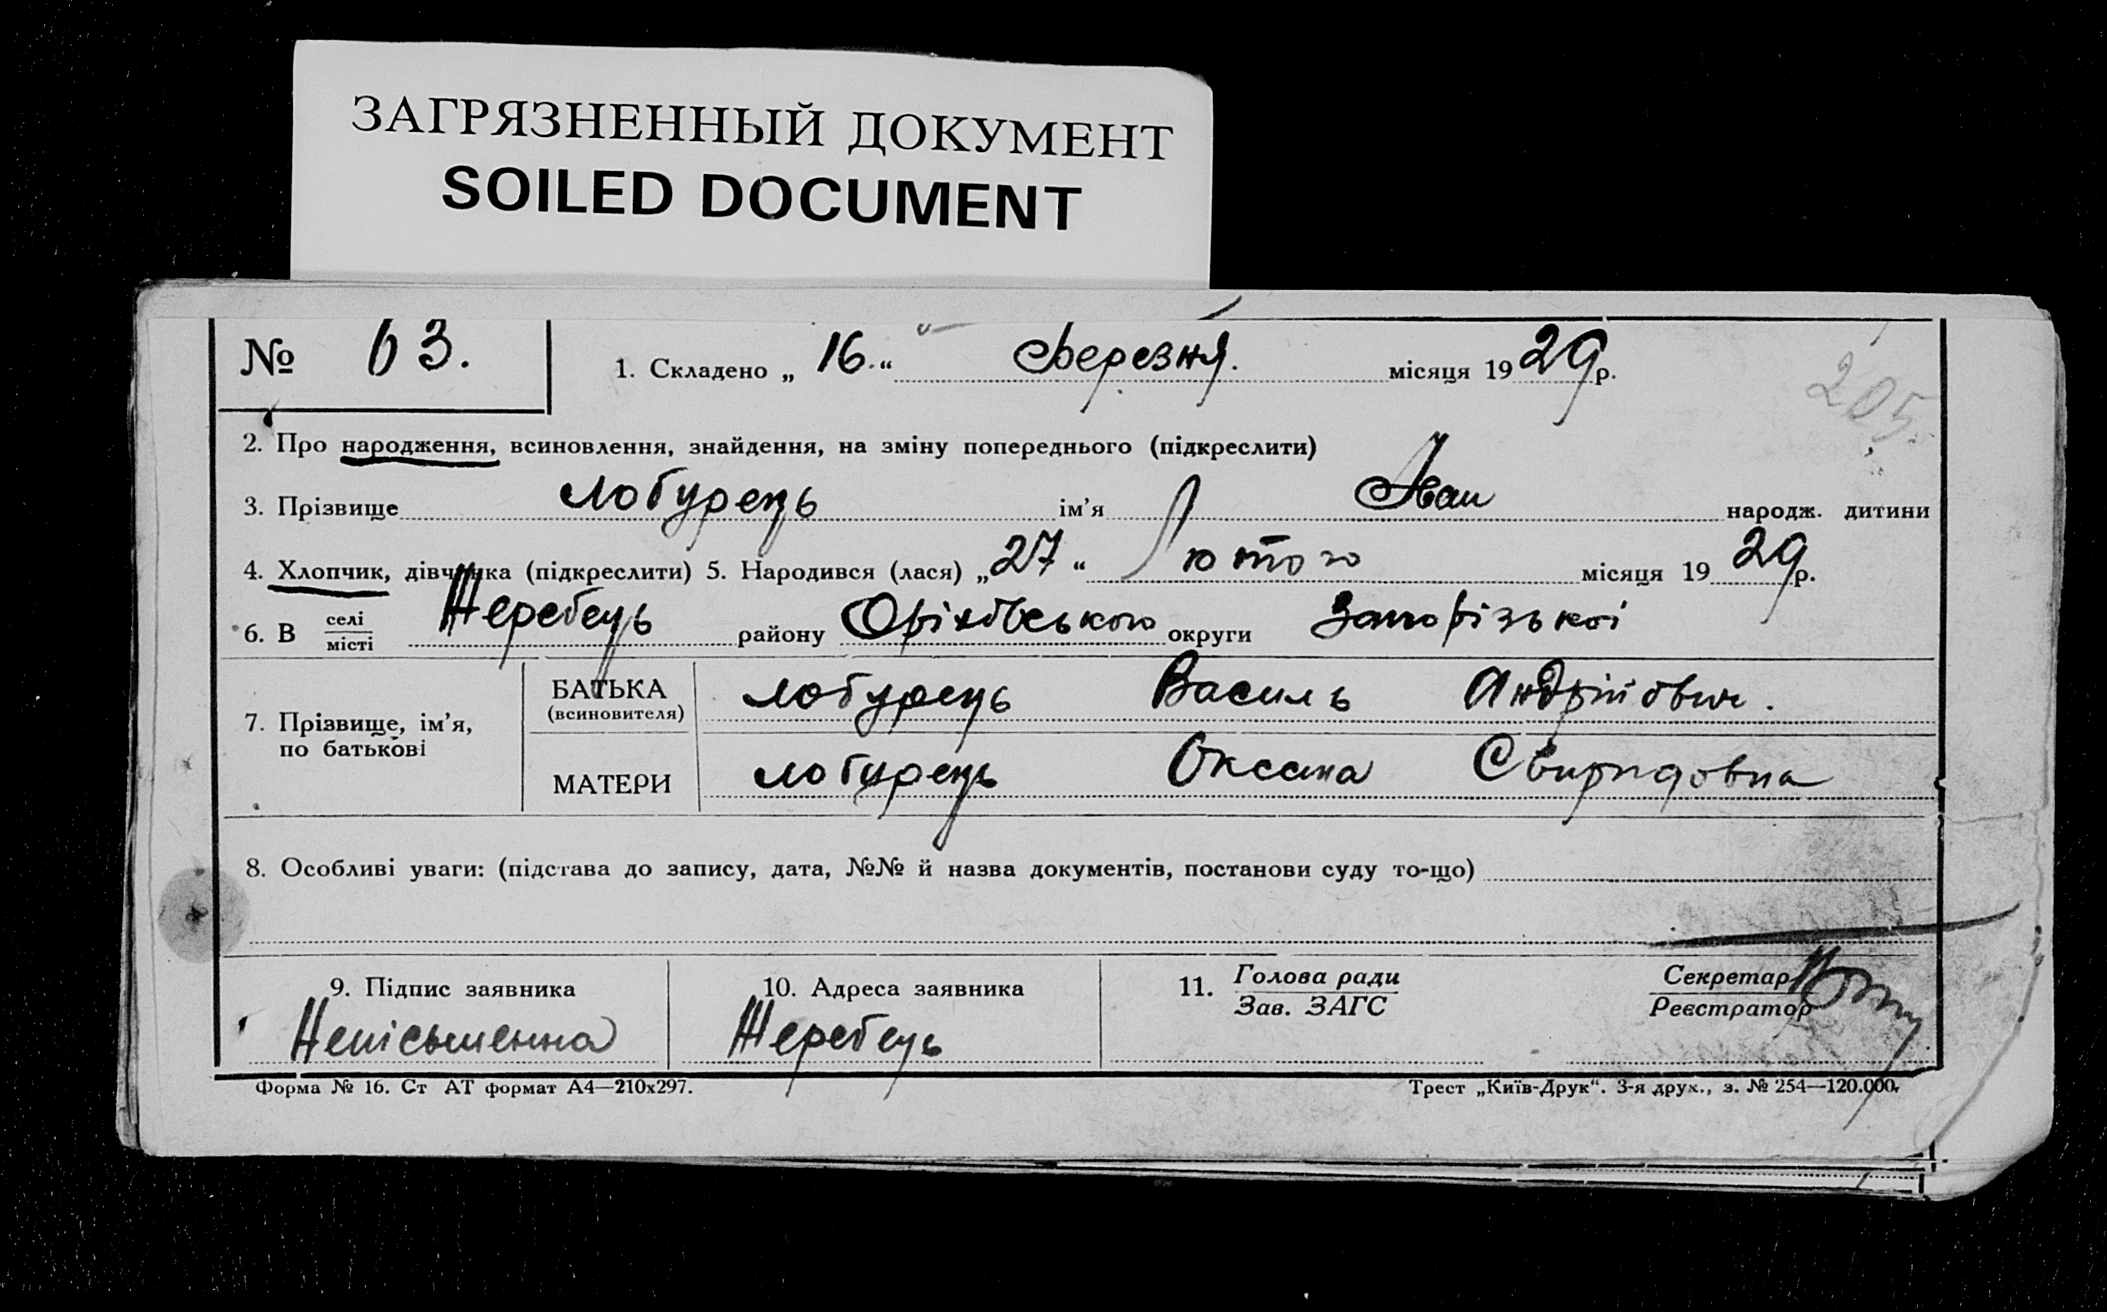 ЗАГРЯЗНЕННЫЙ ДОКУМЕНТ
SOILED DOCUMENT
№ 63.
1. Складено „ 16. “ Березня. місяця 1929 р.
205.
2. Про народження, всиновлення, знайдення, на зміну попереднього (підкреслити)
3. Прізвище Лобурець ім’я Іван народж. дитини
4. Хлопчик, дівчинка (підкреслити) 5. Народився (лася) „ 27 “ Лютого місяця 1929 р.
6. В селі
місті Жеребець району Оріхівського округи Запорізької
7. Прізвище, ім’я,
по батькові
БАТЬКА
(всиновителя) Лобурець Василь Андрійович.
МАТЕРИ Лобурець Оксана Свиридовна
8. Особливі уваги: (підстава до запису, дата, №№ й назва документів, постанови суду то-що)
9. Підпис заявника
Неписьменна
10. Адреса заявника
Жеребець
11. Голова ради
Зав. ЗАГС
Секретар
Реєстратор
Форма № 16. Ст АТ формат А4—210х297.
Трест „Київ-Друк“. 3-я друк., з. № 254—120.000.